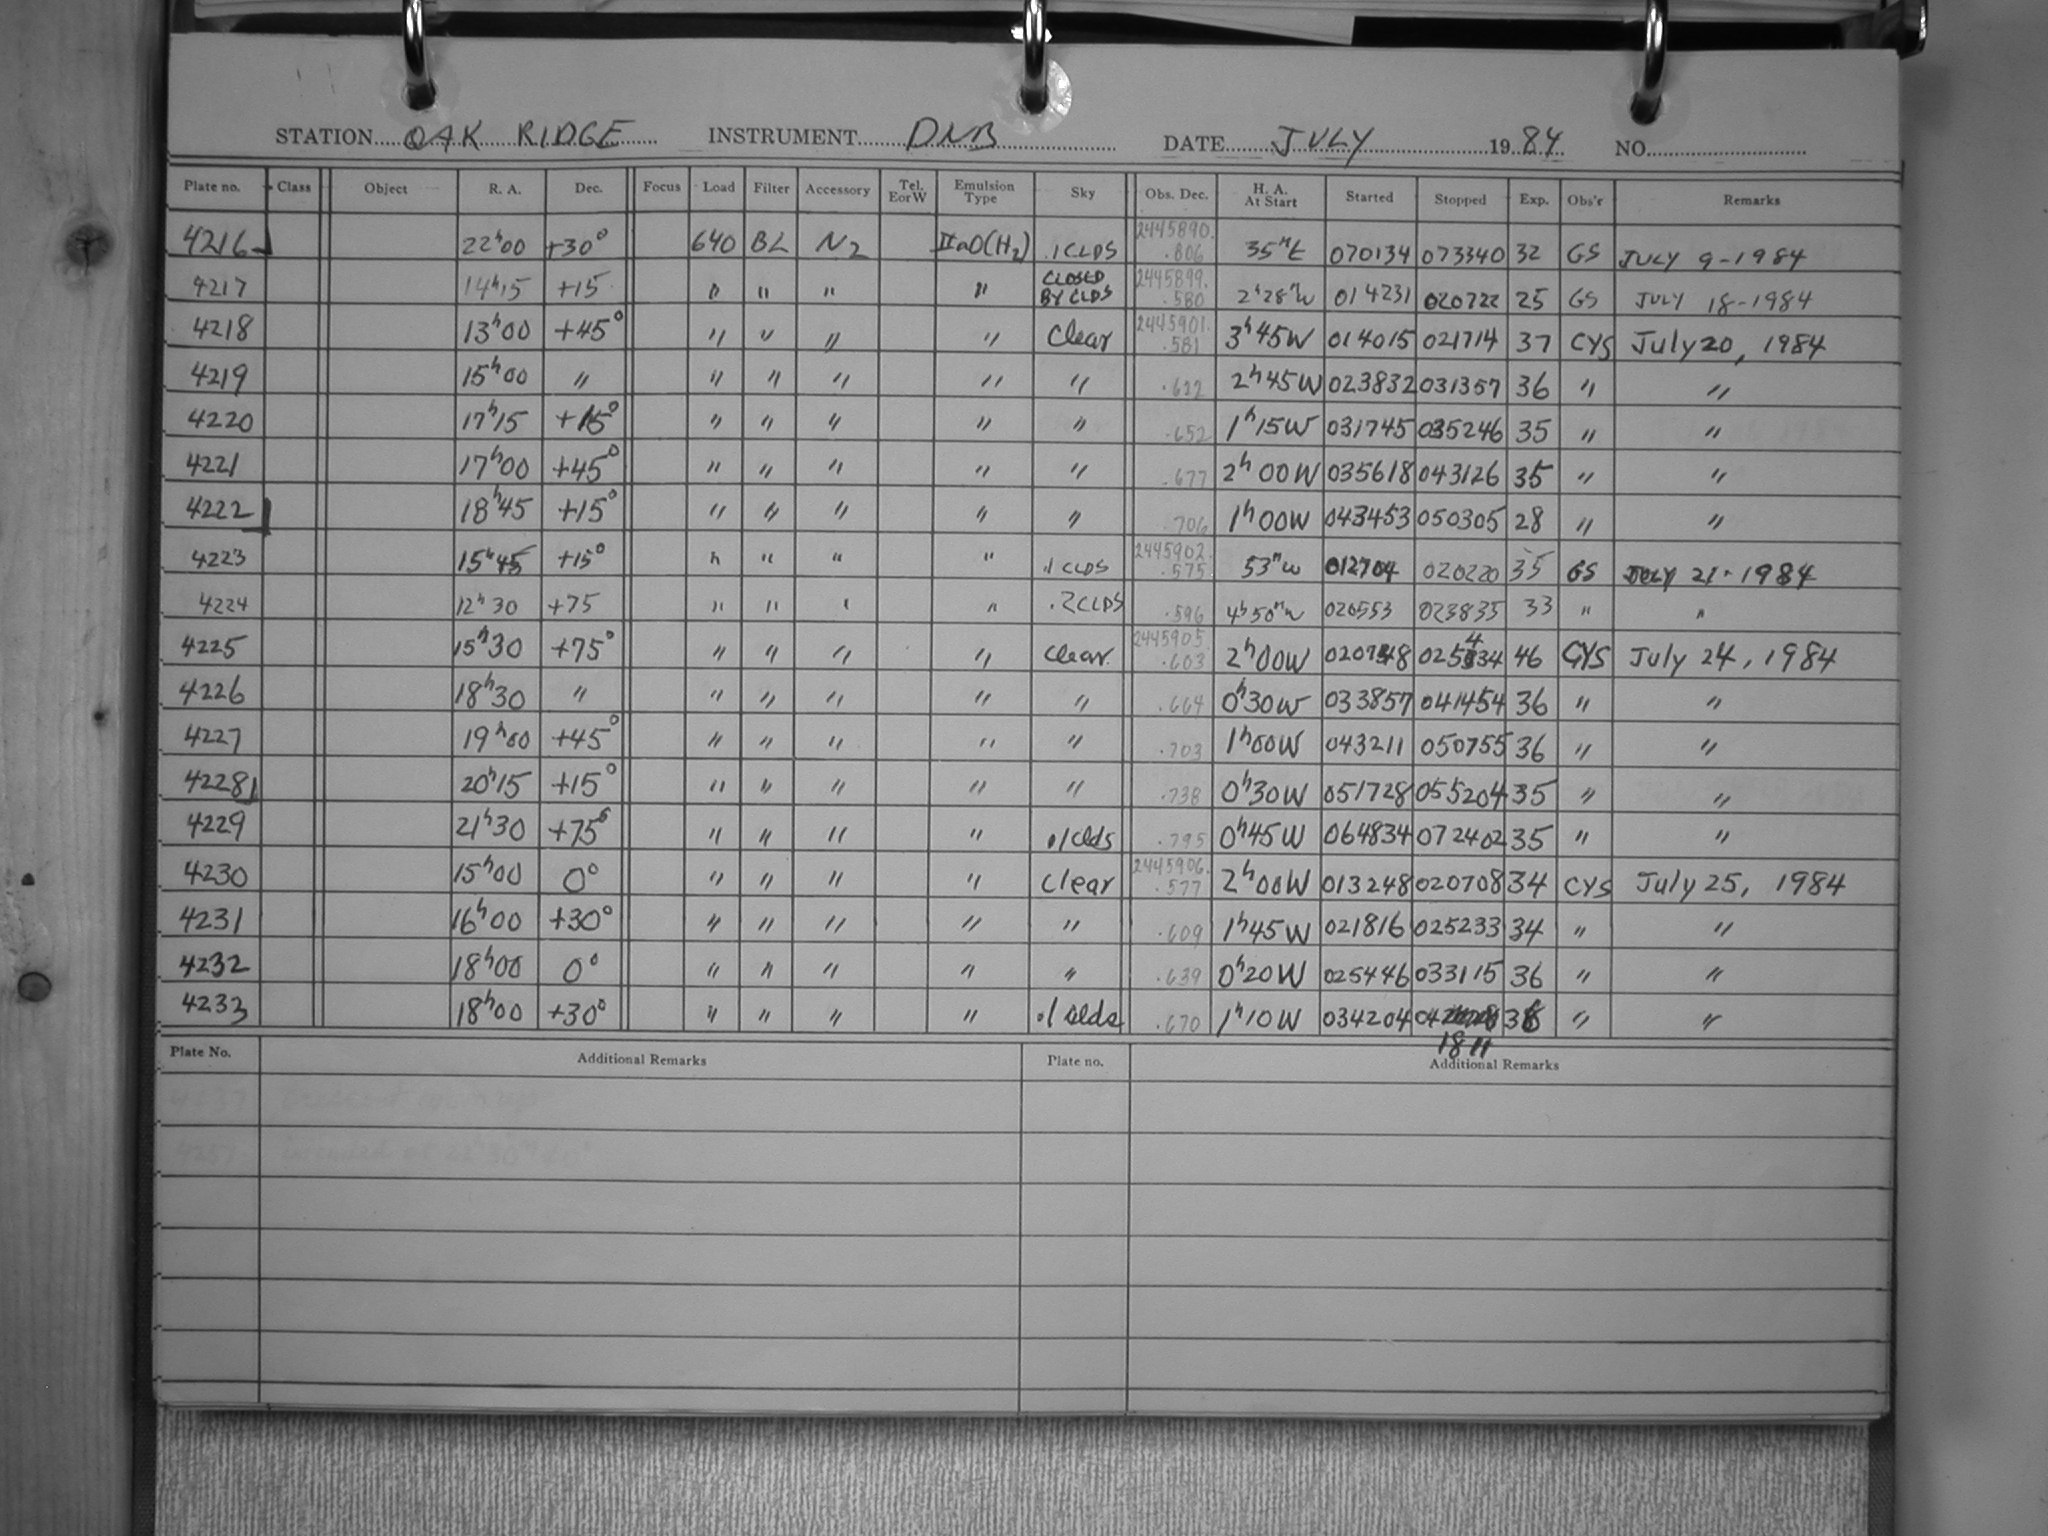 STATION OAK RIDGE INSTRUMENT DNB DATE JULY 1984 NO.
Plate no. Class Object R. A. Dec. Focus Load Filter Accessory Tel. E or W Emulsion Type Sky Obs. Dec. H. A. At Start Started Stopped Exp. Obs'r Remarks
4216 22h00 +30° 640 BL N2 IIaO(H2) .1 CLDS 2445890. .806 35m E 070134 073340 32 GS JULY 9-1984
4217 14h15 +15 " " " " CLOSED BY CLDS 2445899. .580 2h28m W 014231 020722 25 GS JULY 18-1984
4218 13h00 +45° " " " " Clear 2445901. .581 3h45W 014015 021714 37 CYS July 20, 1984
4219 15h00 " " " " " " .622 2h45W 023832 031357 36 " "
4220 17h15 +15° " " " " " .652 1h15W 031745 035246 35 " "
4221 17h00 +45° " " " " " .677 2h00W 035618 043126 35 " "
4222 18h45 +15° " " " " " .706 1h00W 043453 050305 28 " "
4223 15h45 +15° " " " " .1 CLDS 2445902. .575 53m W 012704 020220 35 GS JULY 21-1984
4224 12h30 +75 " " " " .2 CLDS .596 4h50m W 020553 023835 33 " "
4225 15h30 +75° " " " " Clear 2445905. .603 2h00W 020748 025434 46 CYS July 24, 1984
4226 18h30 " " " " " " .664 0h30W 033857 041454 36 " "
4227 19h00 +45° " " " " " .703 1h00W 043211 050755 36 " "
4228 20h15 +15° " " " " " .738 0h30W 051728 055204 35 " "
4229 21h30 +75° " " " " .1 clds .795 0h45W 064834 072402 35 " "
4230 15h00 0° " " " " Clear 2445906. .577 2h00W 013248 020708 34 CYS July 25, 1984
4231 16h00 +30° " " " " " .609 1h45W 021816 025233 34 " "
4232 18h00 0° " " " " " .639 0h20W 025446 033115 36 " "
4233 18h00 +30° " " " " .1 clds .670 1h10W 034204 04 36 " "
1811
Plate No. Additional Remarks Plate no. Additional Remarks